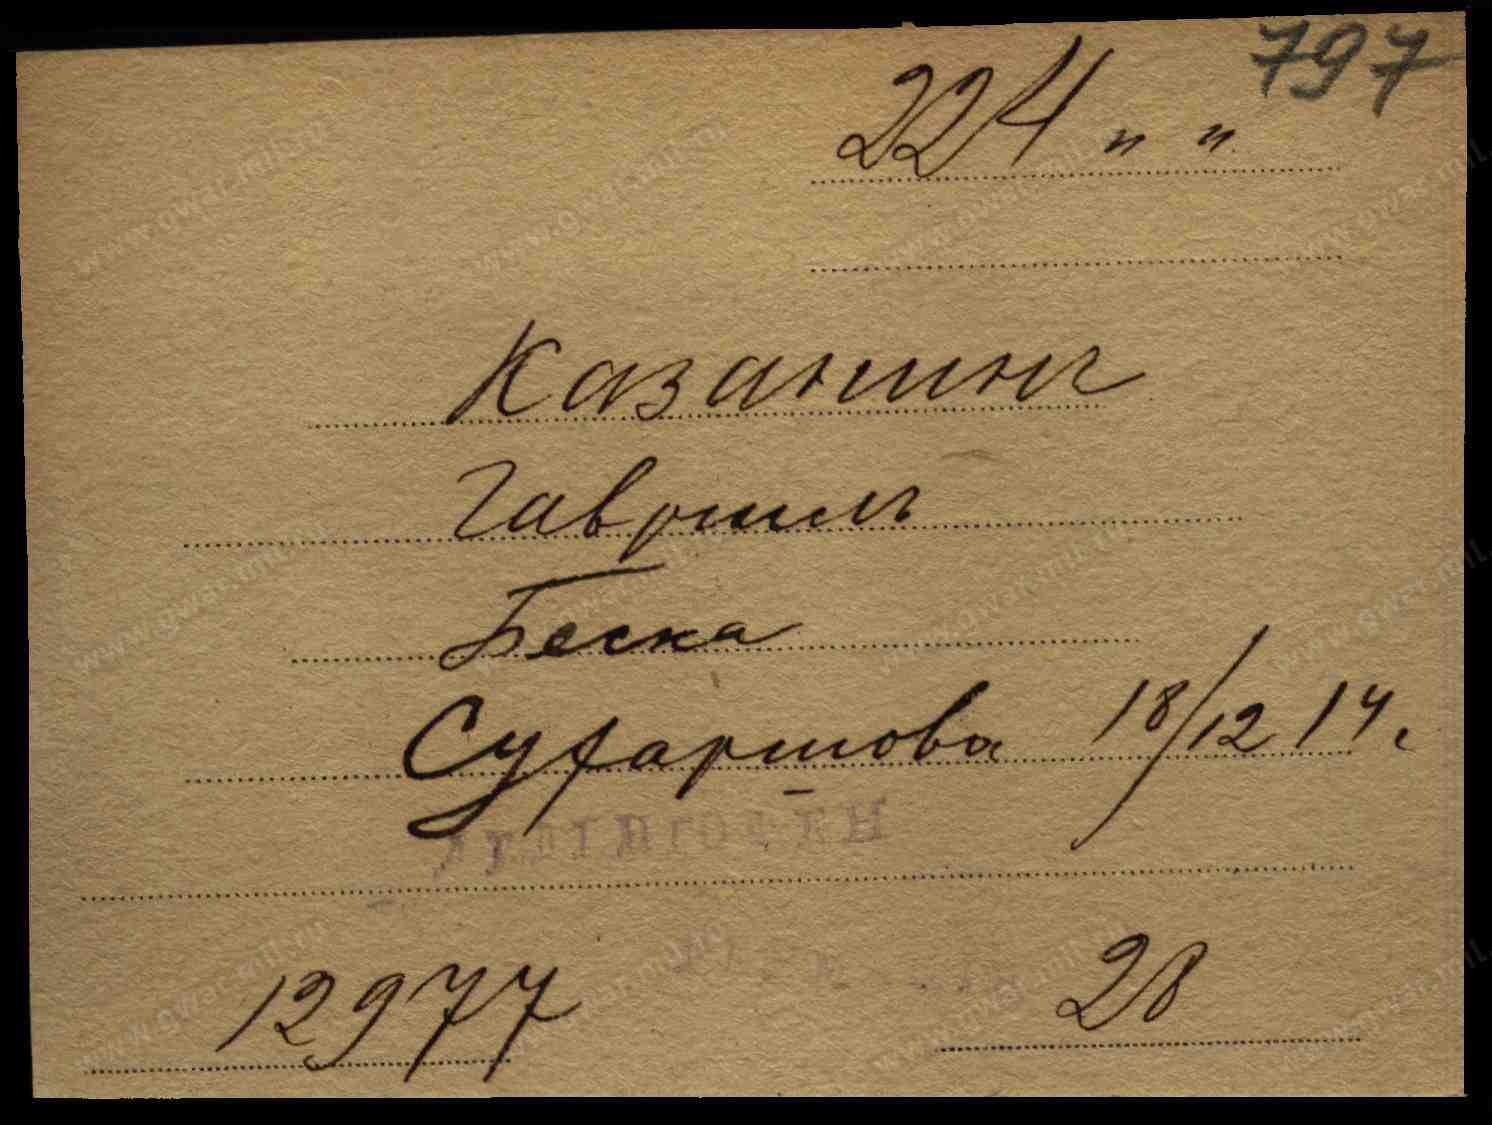 797
224 " "
Казанинъ
Гавриилъ
Беска
Сухаршова 18/12 14 г
12977 28